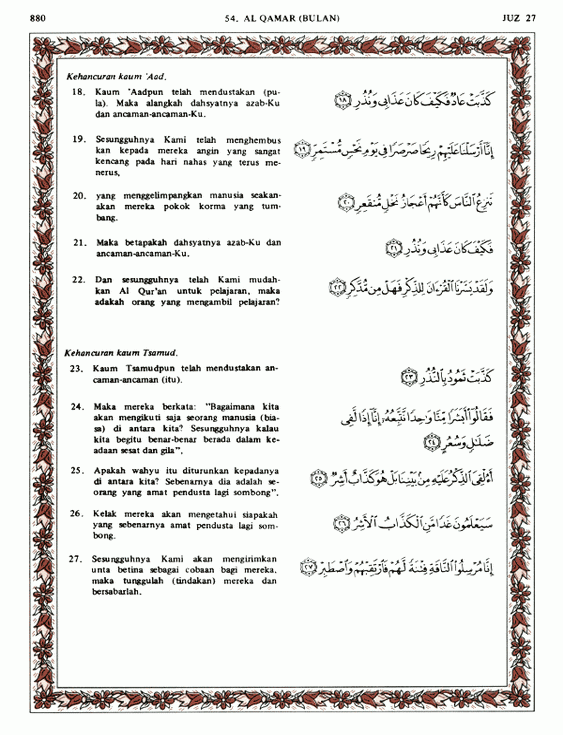 880 54. AL QAMAR (BULAN) JUZ 27
Kehancuran kaum 'Aad.
18. Kaum 'Aadpun telah mendustakan (pu-
la). Maka alangkah dahsyatnya azab-Ku
dan ancaman-ancaman-Ku.
كَذَّبَتْ عَادٌ فَكَيْفَ كَانَ عَذَابِى وَنُذُرِ ١٨
19. Sesungguhnya Kami telah menghembus
kan kepada mereka angin yang sangat
kencang pada hari nahas yang terus me-
nerus,
إِنَّا أَرْسَلْنَا عَلَيْهِمْ رِيحًا صَرْصَرًا فِى يَوْمِ نَحْسٍ مُّسْتَمِرٍّ ١٩
20. yang menggelimpangkan manusia seakan-
akan mereka pokok korma yang tum-
bang.
تَنزِعُ النَّاسَ كَأَنَّهُمْ أَعْجَازُ نَخْلٍ مُّنقَعِرٍ ٢٠
21. Maka betapakah dahsyatnya azab-Ku dan
ancaman-ancaman-Ku.
فَكَيْفَ كَانَ عَذَابِى وَنُذُرِ ٢١
22. Dan sesungguhnya telah Kami mudah-
kan Al Qur'an untuk pelajaran, maka
adakah orang yang mengambil pelajaran?
وَلَقَدْ يَسَّرْنَا الْقُرْءَانَ لِلذِّكْرِ فَهَلْ مِن مُّدَّكِرٍ ٢٢
Kehancuran kaum Tsamud.
23. Kaum Tsamudpun telah mendustakan an-
caman-ancaman (itu).
كَذَّبَتْ ثَمُودُ بِالنُّذُرِ ٢٣
24. Maka mereka berkata: "Bagaimana kita
akan mengikuti saja seorang manusia (bia-
sa) di antara kita? Sesungguhnya kalau
kita begitu benar-benar berada dalam ke-
adaan sesat dan gila",
فَقَالُوا أَبَشَرًا مِّنَّا وَاحِدًا نَّتَّبِعُهُ إِنَّا إِذًا لَّفِى
ضَلَالٍ وَسُعُرٍ ٢٤
25. Apakah wahyu itu diturunkan kepadanya
di antara kita? Sebenarnya dia adalah se-
orang yang amat pendusta lagi sombong".
أَءُلْقِىَ الذِّكْرُ عَلَيْهِ مِنْ بَيْنِنَا بَلْ هُوَ كَذَّابٌ أَشِرٌ ٢٥
26. Kelak mereka akan mengetahui siapakah
yang sebenarnya amat pendusta lagi som-
bong.
سَيَعْلَمُونَ غَدًا مَّنِ الْكَذَّابُ الْأَشِرُ ٢٦
27. Sesungguhnya Kami akan mengirimkan
unta betina sebagai cobaan bagi mereka,
maka tunggulah (tindakan) mereka dan
bersabarlah.
إِنَّا مُرْسِلُوا النَّاقَةِ فِتْنَةً لَّهُمْ فَارْتَقِبْهُمْ وَاصْطَبِرْ ٢٧